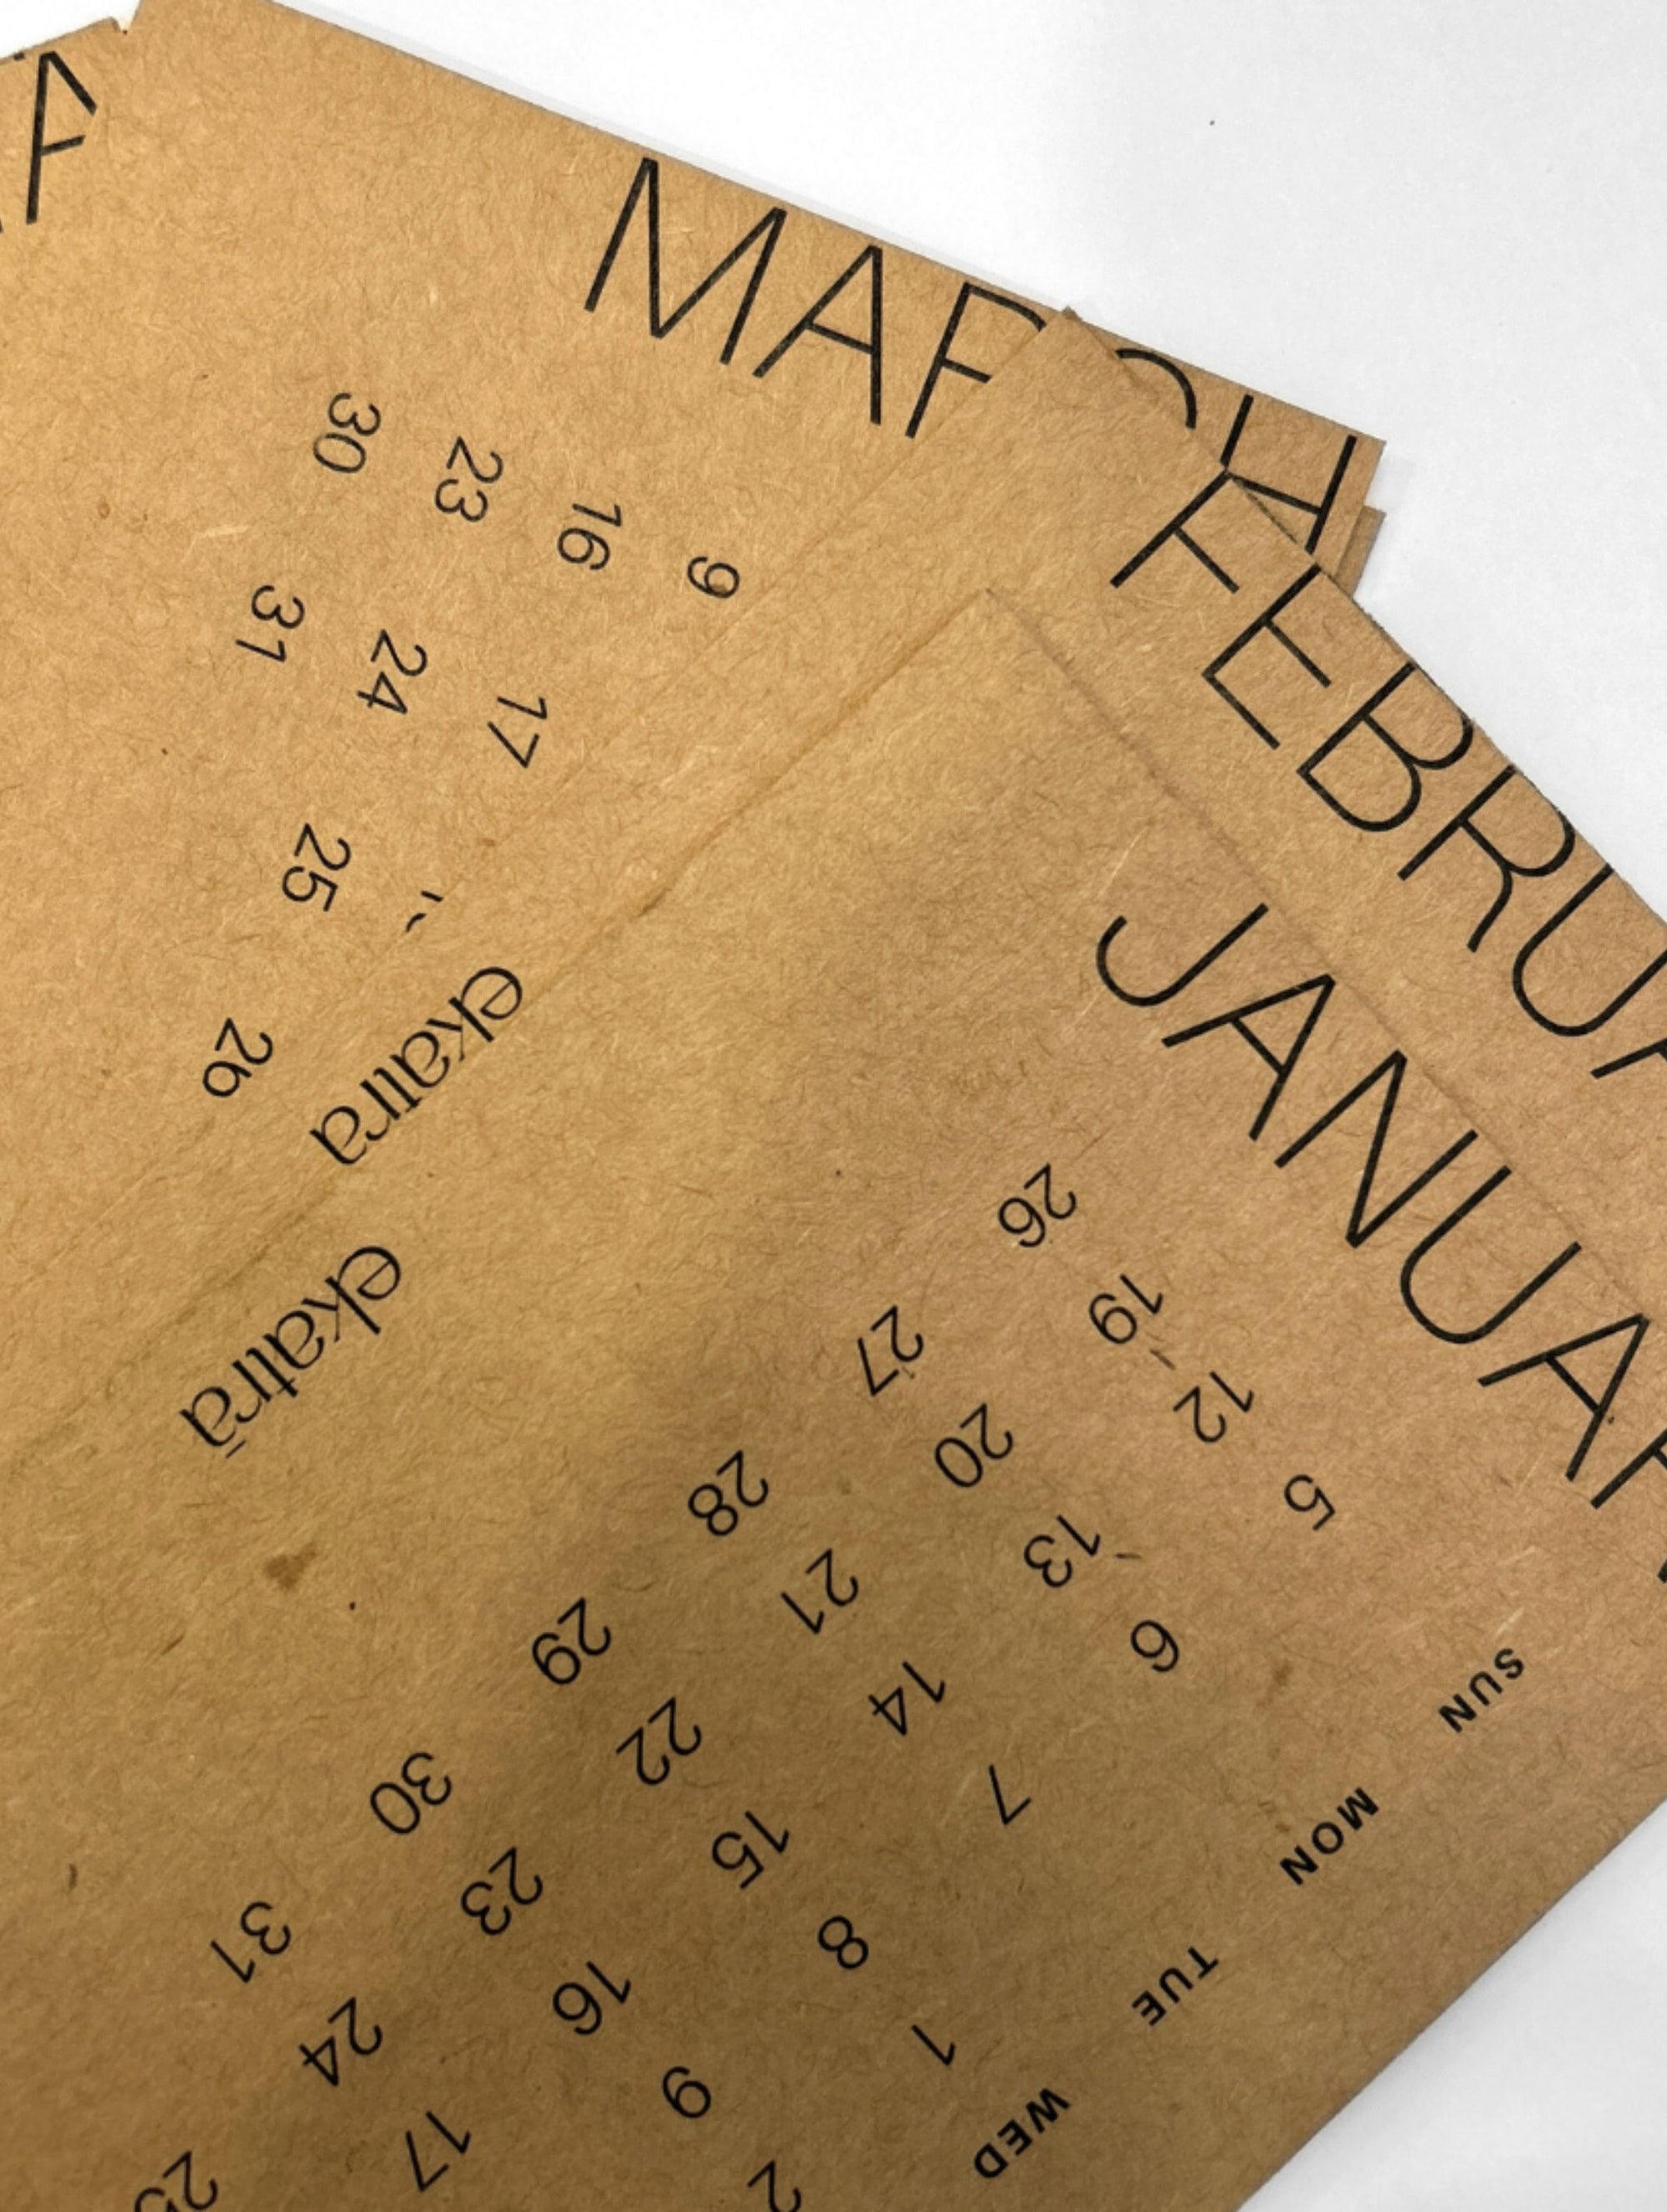 MARCH
9
16 17
23 24 25 26
30 31
FEBRUA
ekatra
JANUAR
SUN MON TUE WED
1 2
5 6 7 8 9
12 13 14 15 16 17
19 20 21 22 23 24 25
26 27 28 29 30 31
ekatrā